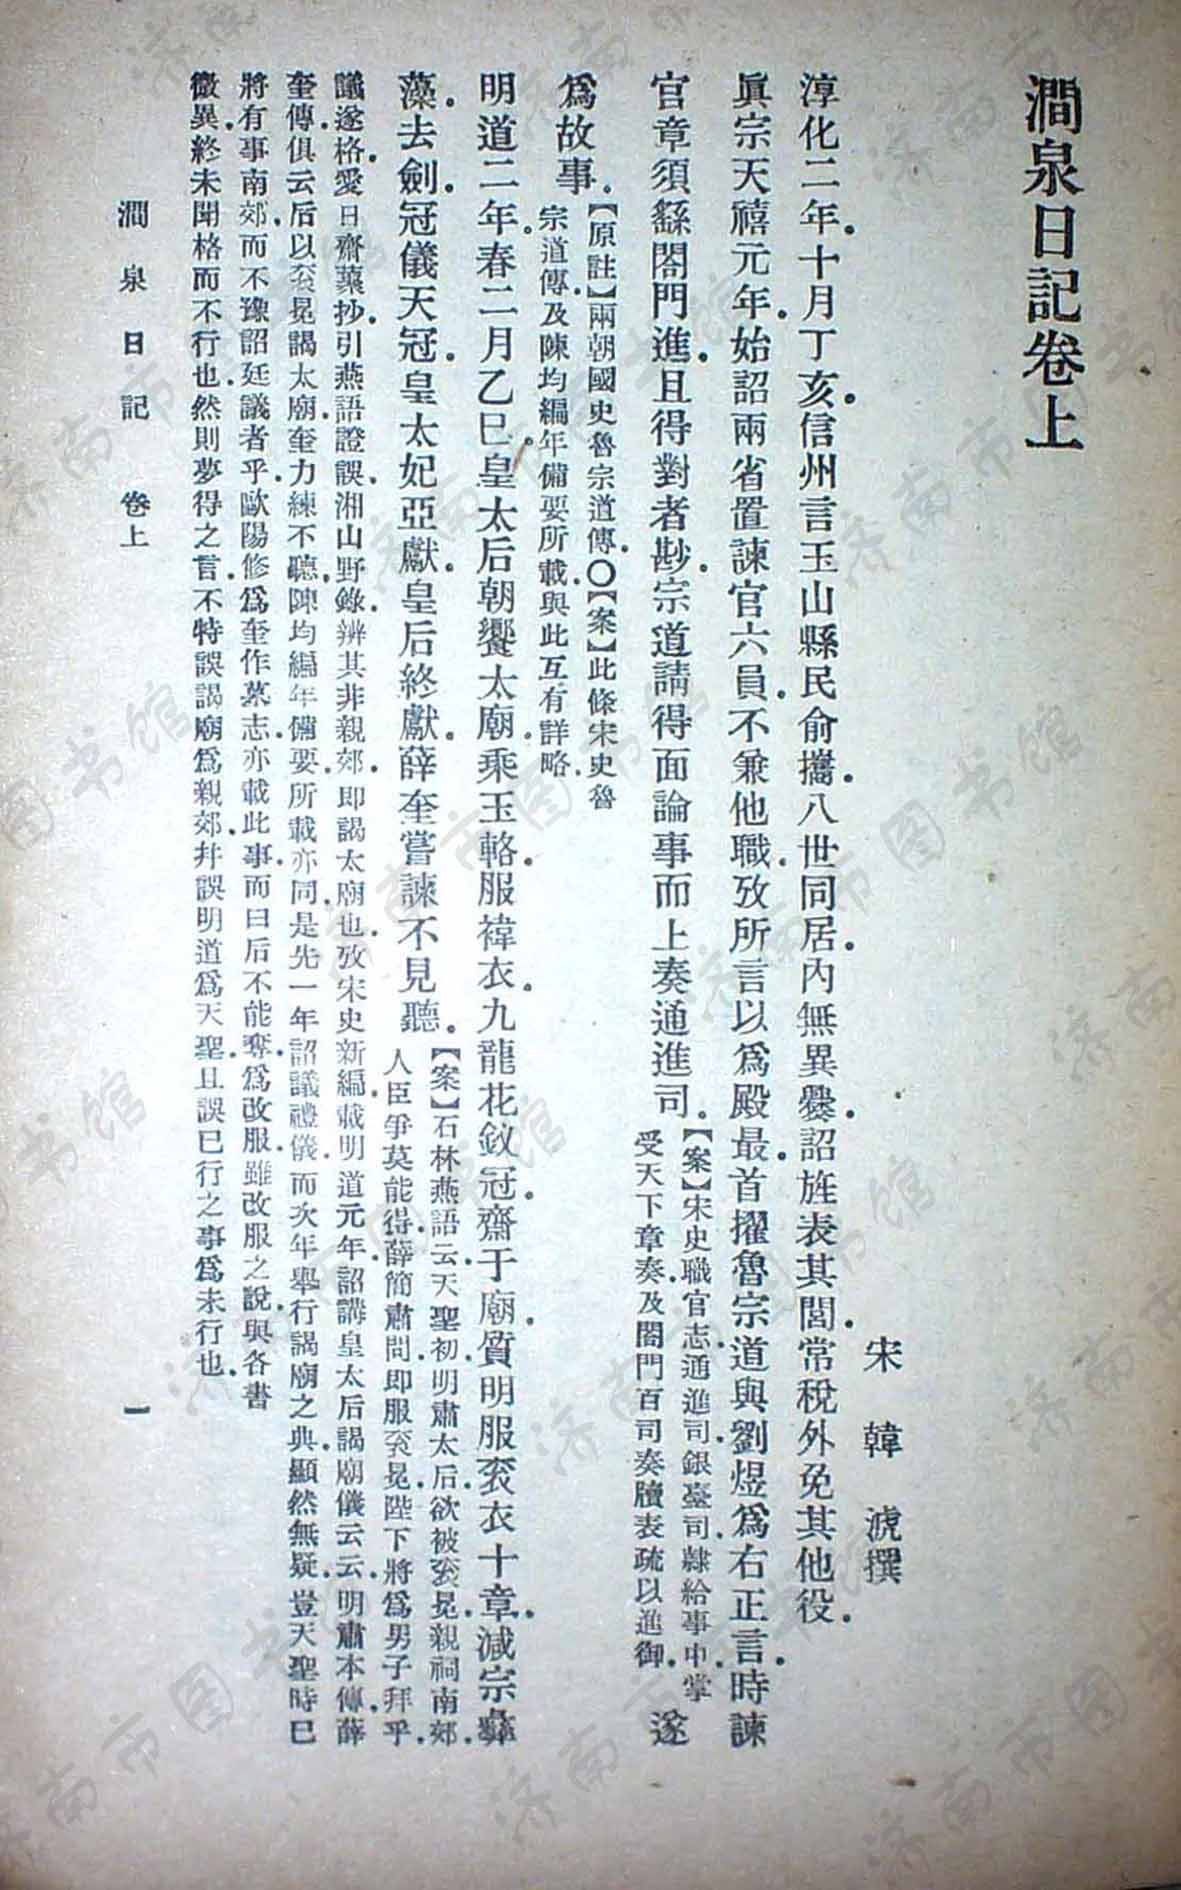 澗泉日記卷上
宋 韓 淲撰
淳化二年。十月丁亥。信州言玉山縣民俞攜。八世同居。內無異爨。詔旌表其閭。常稅外免其他役。
眞宗天禧元年。始詔兩省置諫官六員。不兼他職。攷所言以爲殿最。首擢魯宗道與劉煜爲右正言。時諫
官章須繇閤門進。且得對者尠。宗道請得面論事而上奏通進司。
【案】宋史職官志。通進司。銀臺司。隸給事中。掌
受天下章奏。及閤門百司奏牘表疏以進御。
遂
爲故事。
【原註】兩朝國史魯宗道傳。〇【案】此條宋史魯
宗道傳。及陳均編年備要所載。與此互有詳略。
明道二年。春二月乙巳。皇太后朝饗太廟。乘玉輅。服褘衣。九龍花釵冠。齋于廟。質明。服衮衣十章。減宗彝
藻。去劍。冠儀天冠。皇太妃亞獻。皇后終獻。薛奎嘗諫不見聽。
【案】石林燕語云。天聖初。明肅太后欲被衮冕。親祠南郊。
人臣爭莫能得。薛簡肅問。即服衮冕。陛下將爲男子拜乎。
議遂格。愛日齋藂抄。引燕語證誤。湘山野錄。辨其非親郊。即謁太廟也。攷宋史新編。載明道元年。詔講皇太后謁廟儀云云。明肅本傳。薛
奎傳。俱云后以衮冕謁太廟。奎力練不聽。陳均編年備要。所載亦同。是先一年詔議禮儀。而次年舉行謁廟之典。顯然無疑。豈天聖時已
將有事南郊。而不豫詔廷議者乎。歐陽修爲奎作墓志。亦載此事。而曰后不能奪。爲改服。雖改服之說。與各書
微異。終未聞格而不行也。然則夢得之言。不特誤謁廟爲親郊。幷誤明道爲天聖。且誤已行之事爲未行也。
澗泉日記 卷上 一